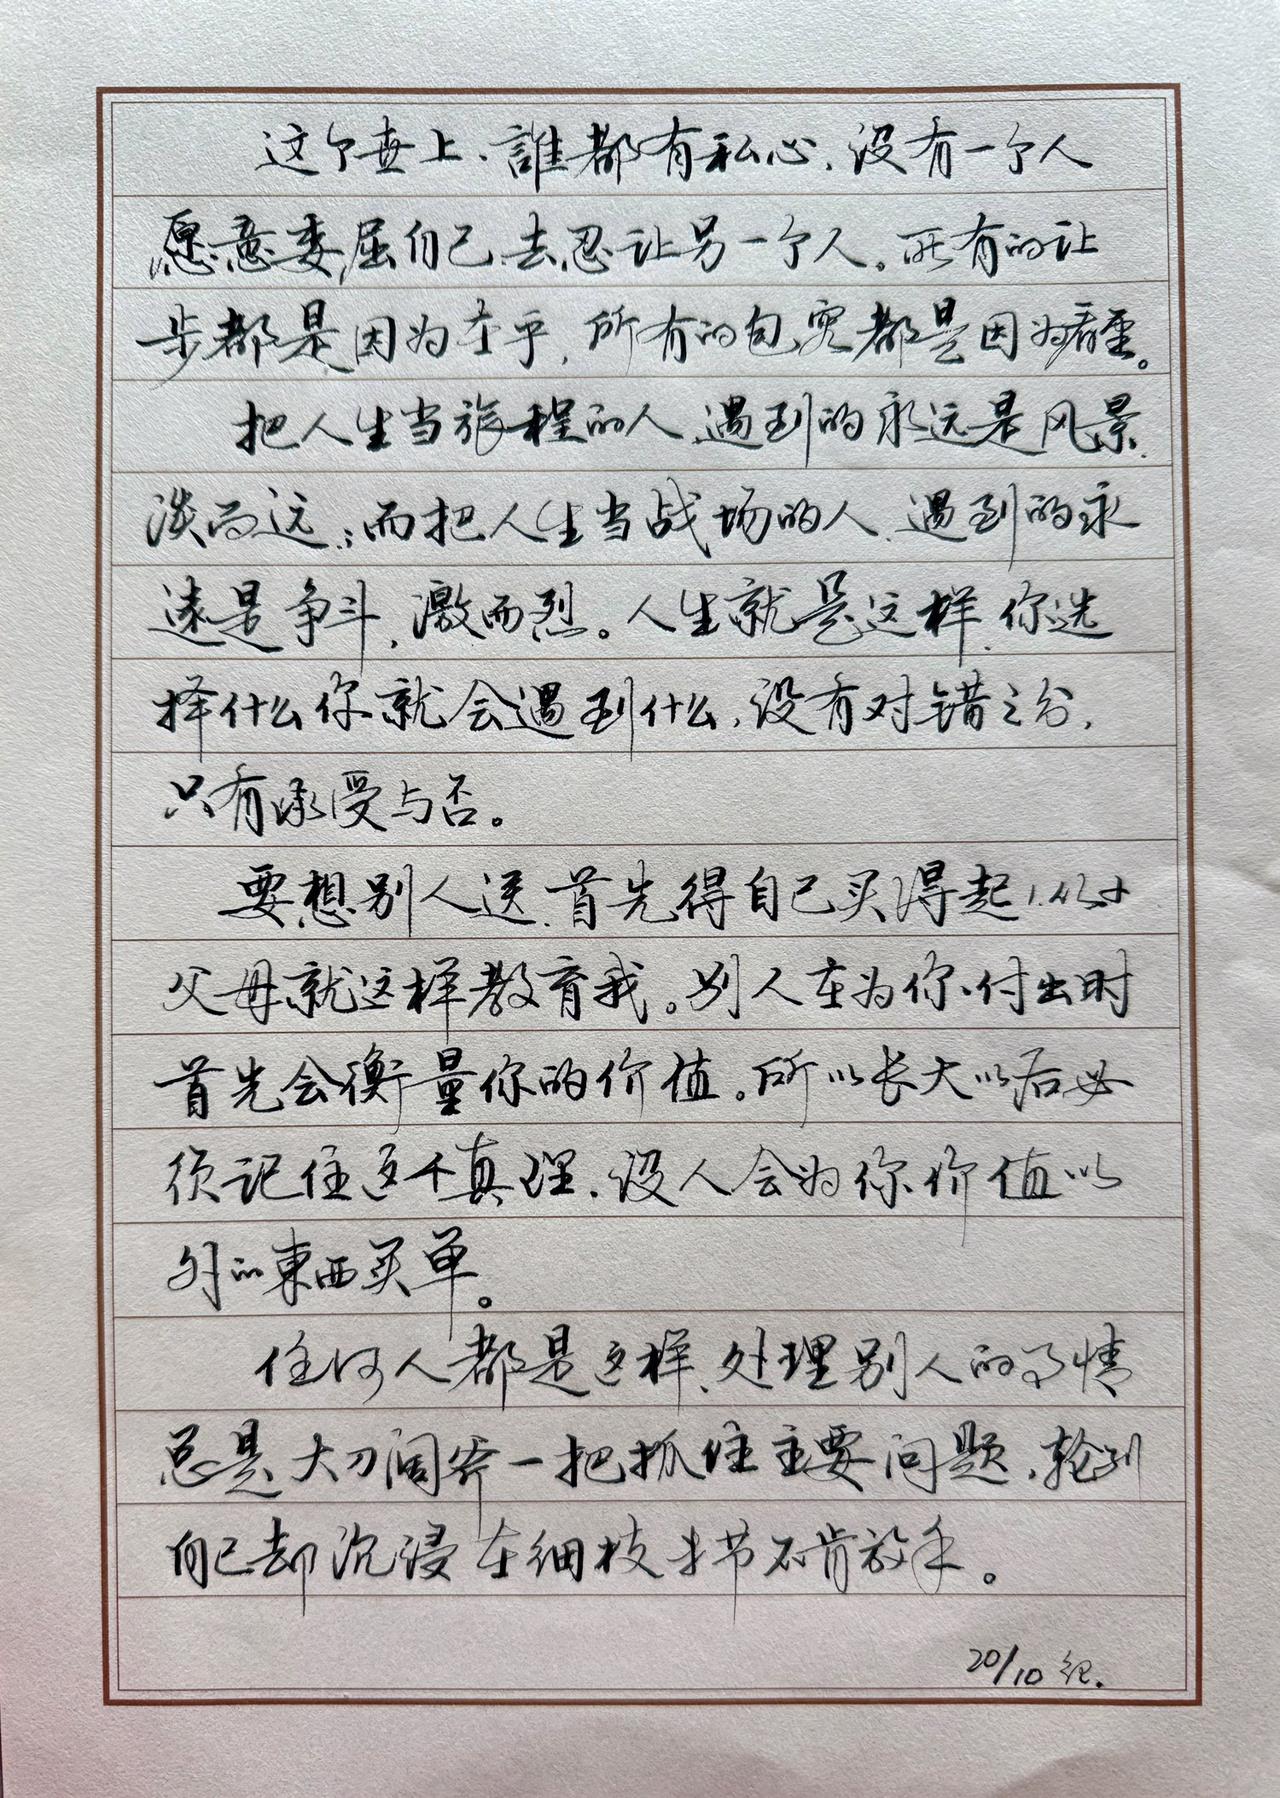 这个世上、誰都有私心，没有一个人
愿意委屈自己、去忍让另一个人。所有的让
步都是因为在乎，所有的包容都是因为看重。
把人生当旅程的人、遇到的永远是风景、
淡而远；而把人生当战场的人、遇到的永
遠是争斗，激而烈。人生就是这样、你选
择什么你就会遇到什么，没有对错之分，
只有承受与否。
要想别人送、首先得自己买得起，小时
父母就这样教育我。别人在为你付出时
首先会衡量你的价值。所以长大以后必
须记住这个真理、没人会为你价值以
外的東西买单。
任何人都是这样、处理别人的事情
总是大刀阔斧一把抓住主要问题，轮到
自己却沉浸在细枝末节不肯放手。
20/10